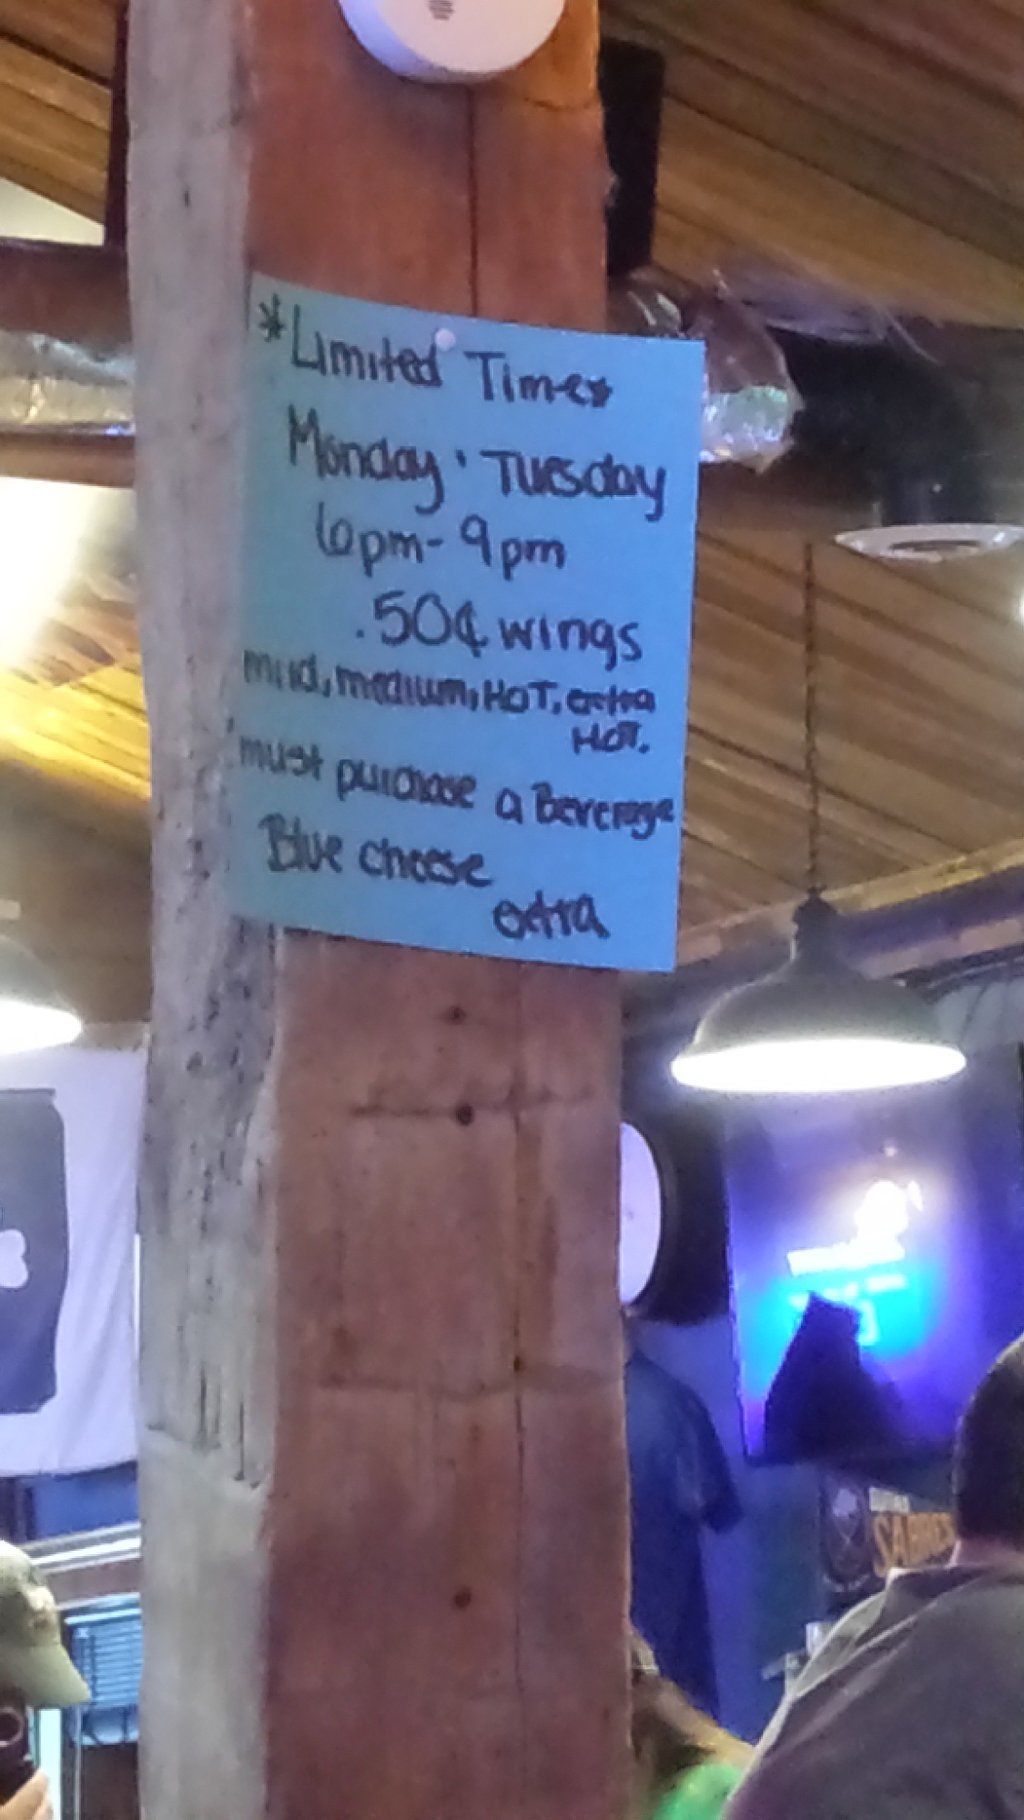 *Limited Time*
Monday · Tuesday
6pm-9pm
.50¢ wings
mild, medium, HOT, extra
HOT.
must purchase a Beverage
Blue cheese
extra
SABRES